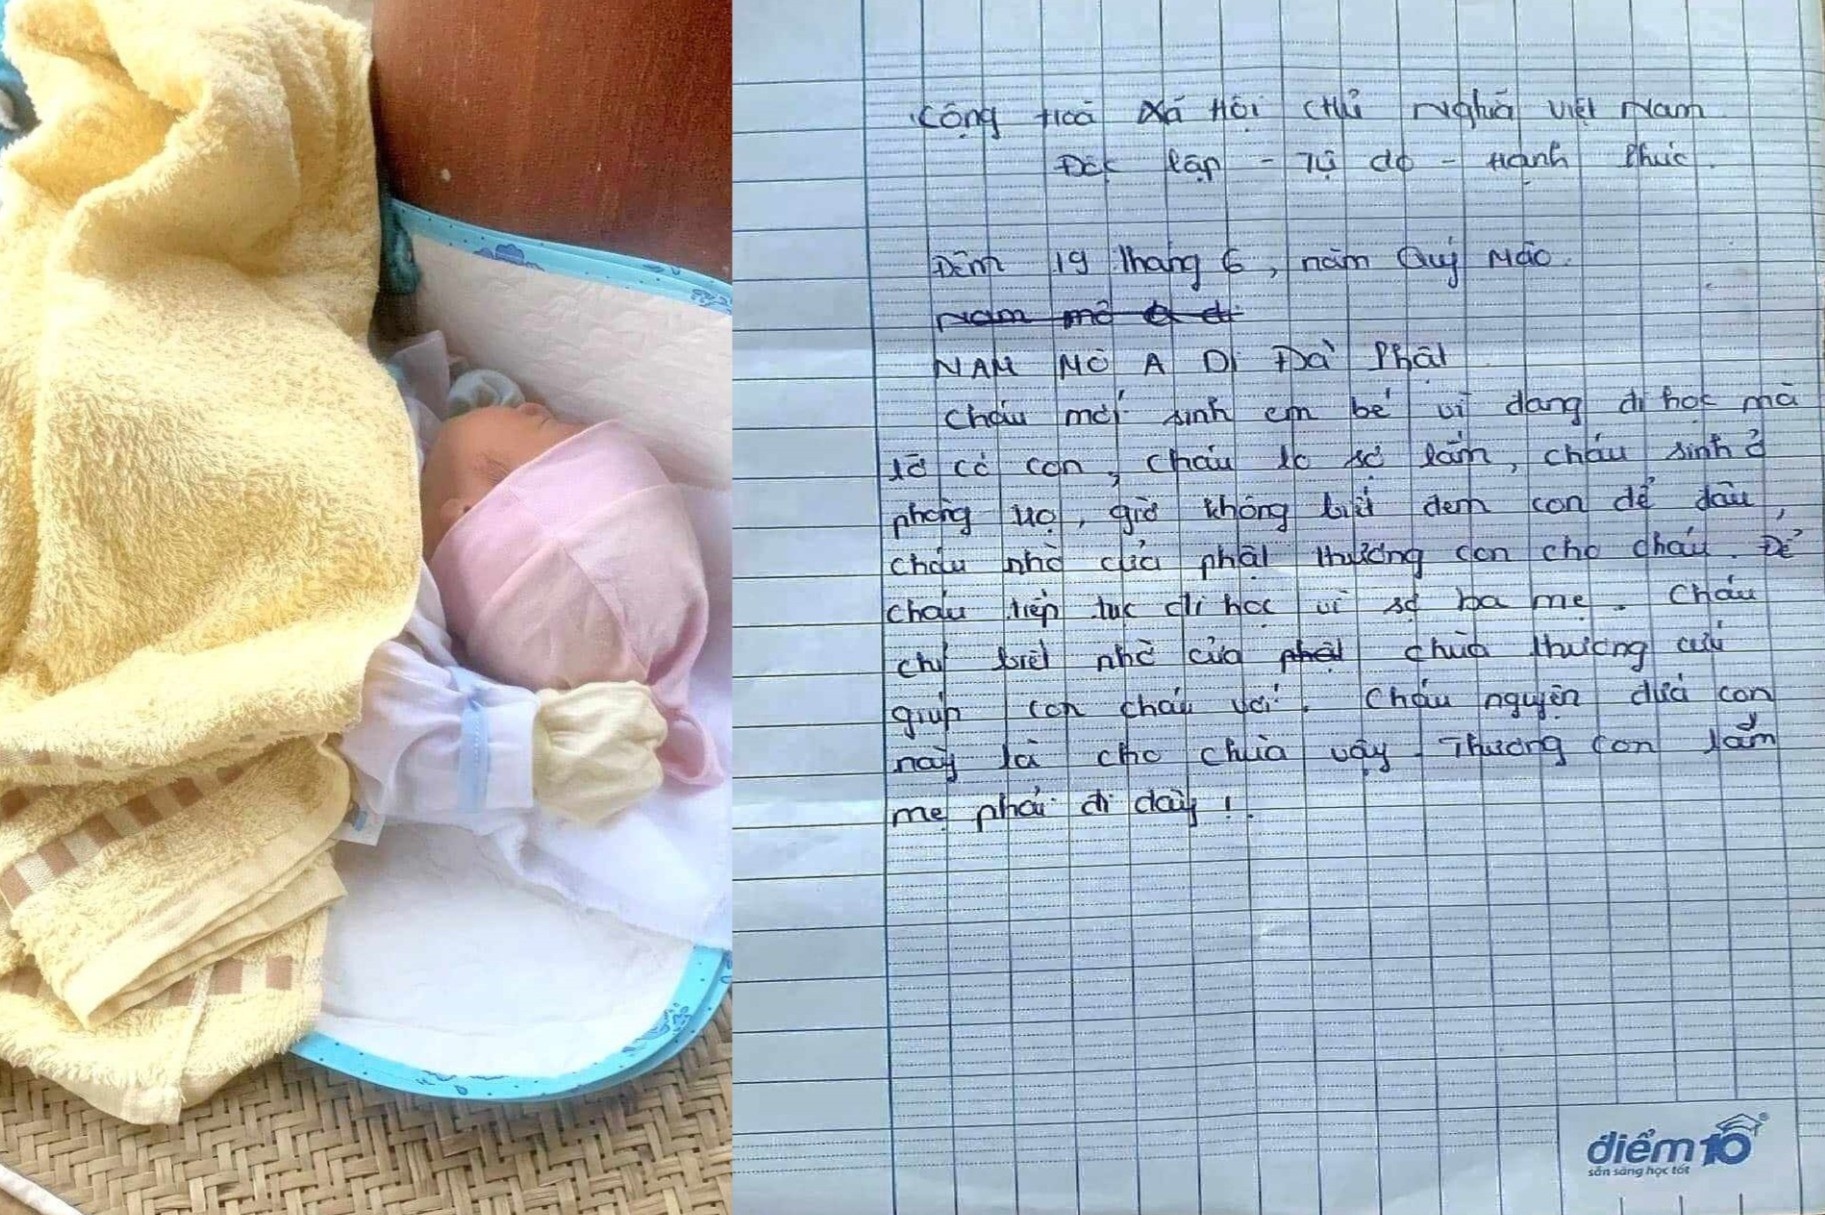 Cộng Hoà Xã Hội Chủ Nghĩa Việt Nam
Độc lập - Tự do - Hạnh Phúc.
Đêm 19 tháng 6, năm Quý Mão.
Nam mô a di
NAM MÔ A DI ĐÀ Phật
Cháu mới sinh em bé vì đang đi học mà
lỡ có con, cháu lo sợ lắm, cháu sinh ở
phòng trọ, giờ không biết đem con để đâu,
cháu nhờ cửa phật thương con cho cháu. Để
cháu tiếp tục đi học vì sợ ba mẹ. Cháu
chỉ biết nhờ cửa phật chùa thương cứu
giúp con cháu với. Cháu nguyện đứa con
này là cho chùa vậy. Thương con lắm
mẹ phải đi đây!.
điểm 10
sẵn sàng học tốt